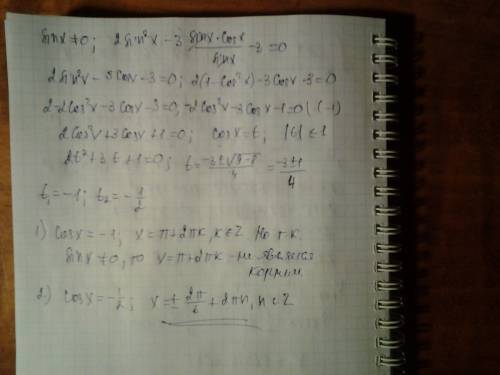 sinx ≠ 0; 2sin²x - 3 (sinx·cosx)/sinx - 3 = 0
2sin²x - 3cosx - 3 = 0; 2(1-cos²x) - 3cosx - 3 = 0
2-2cos²x-3cosx-3=0; -2cos²x-3cosx-1=0 | (-1)
2cos²x+3cosx+1=0; cosx=t, |t| ≤ 1
2t²+3t+1=0; t = (-3±√(9-8))/4 = (-3±1)/4
t₁=-1; t₂=-1/2
1) cosx=-1, x=π+2πk, k∈Z. Но т.к.
sinx≠0, то x=π+2πk - не является
корнем
2) cosx=-1/2; x=±2π/3+2πn, n∈Z